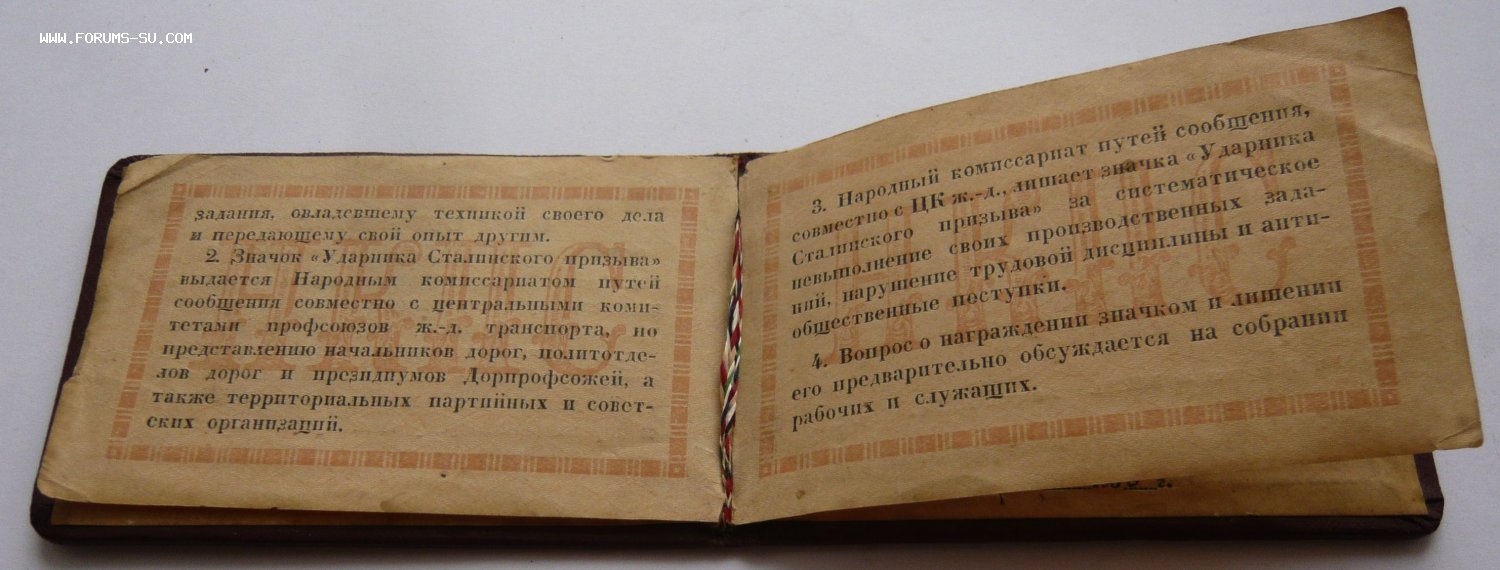 WWW.FORUMS-SU.COM
задания, овладевшему техникой своего дела
и передающему свой опыт другим.
2. Значок «Ударника Сталинского призыва»
выдается Народным комиссариатом путей
сообщения совместно с центральными коми-
тетами профсоюзов ж.-д. транспорта, по
представлению начальников дорог, политотде-
лов дорог и президиумов Дорпрофсожей, а
также территориальных партийных и совет-
ских организаций.
3. Народный комиссариат путей сообщения,
совместно с ЦК ж.-д., лишает значка «Ударника
Сталинского призыва» за систематическое
невыполнение своих производственных зада-
ний, нарушение трудовой дисциплины и анти-
общественные поступки.
4. Вопрос о награждении значком и лишении
его предварительно обсуждается на собрании
рабочих и служащих.